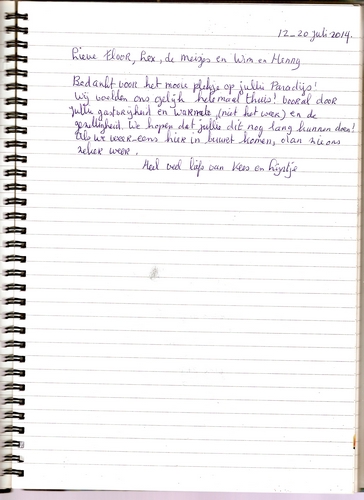 12_20 juli 2014.
Lieve Floor, Lex, de meisjes en Wim en Henny
Bedankt voor het mooie plekje op jullie Paradijs!
Wij voelden ons gelijk helemaal thuis! vooral door
jullie gastvrijheid en warmte, (niet het weer) en de
gezelligheid. We hopen dat jullie dit nog lang kunnen doen!
Als we weer eens hier in buurt komen, dan zie ons
zeker weer.
Heel veel liefs van Kees en